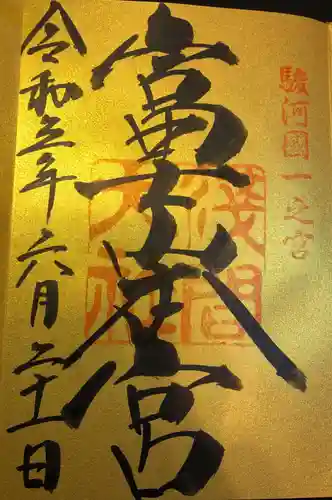 駿河國一之宮
富士本宮
浅間
大社
令和五年六月二十一日